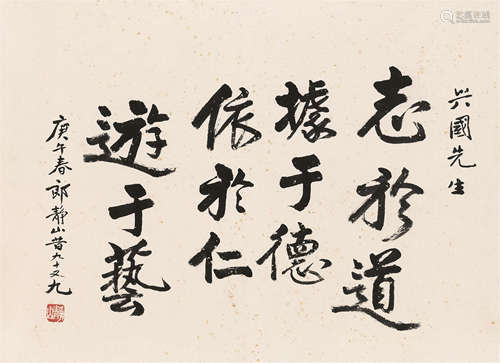 兴國先生
志於道
據于德
依於仁
遊于藝
庚午春郎靜山昔九十又九